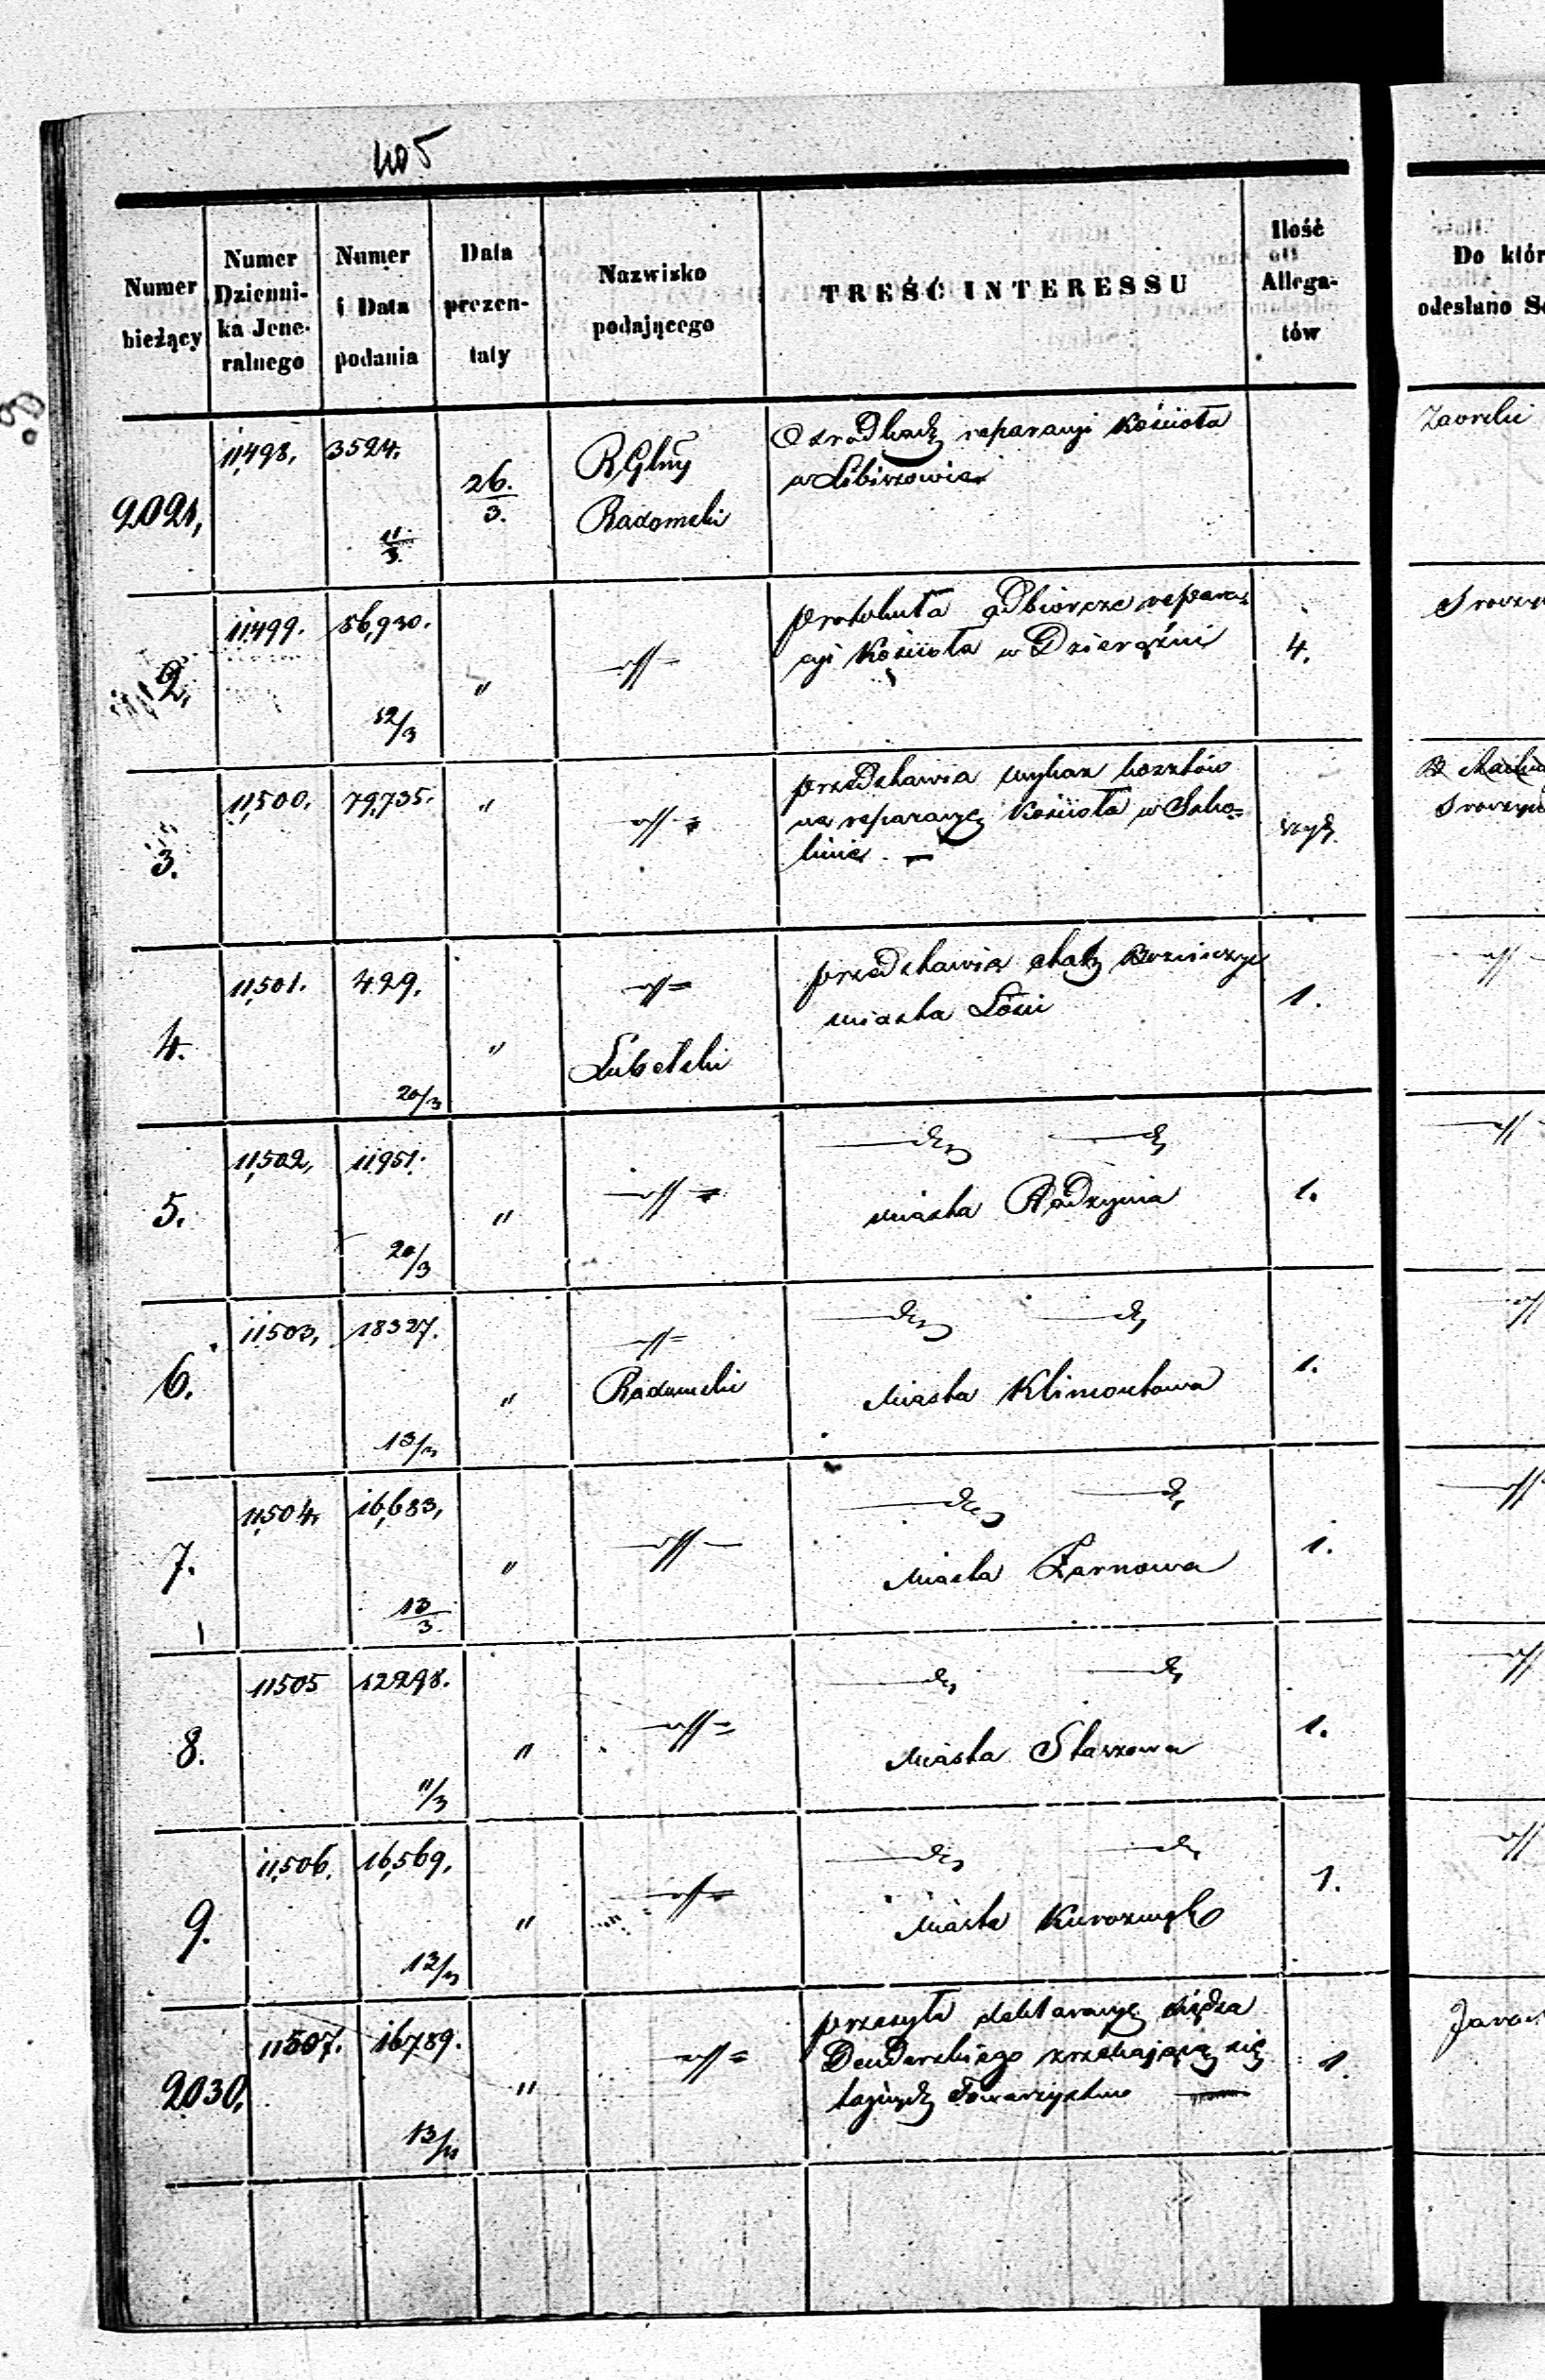 405
Numer bieżący | Numer Dzienni- ka Jene- ralnego | Numer i Data podania | Data prezen- taty | Nazwisko podającego | TREŚĆ INTERESSU | Ilość Allega- tów | Do któr odesłano
2021, | 11,498, | 3524. 11/3. | 26./3. | R. Głny Radomski | O rozkład reparacyi Kościoła
w Libiszowie
2, | 11,499. | 56,930. 12/3 | " | | protokuła odbiorcze repara-
cyi Kościoła w Dzierążni | 4.
3. | 11,500. | 79,735. | " | | przedstawia wykaz kosztów
na reparacyę Kościoła w Seko-
linie. —
4. | 11,501. | 429. 20/3 | " | Lubelski | przedstawia etat
miasta Łosic | 1.
5. | 11,502, | 11951. 20/3 | " | | miasta Radzynia | 1.
6. | 11503, | 18327. 13/3 | " | Radomski | Miasta Klimontowa | 1.
7. | 11,504, | 16,683, 13/3. | " | | Miasta Żarnowa | 1.
8. | 11505 | 12298. 11/3 | " | | Miasta Staszowa | 1.
9. | 11,506. | 16,569, 12/3 | " | | Miasta Kurozwęk | 1.
2030, | 11507. | 16789. | " | | przesyła deklaracyę księdza
zrzekającą się
Towarzystwo | 1.